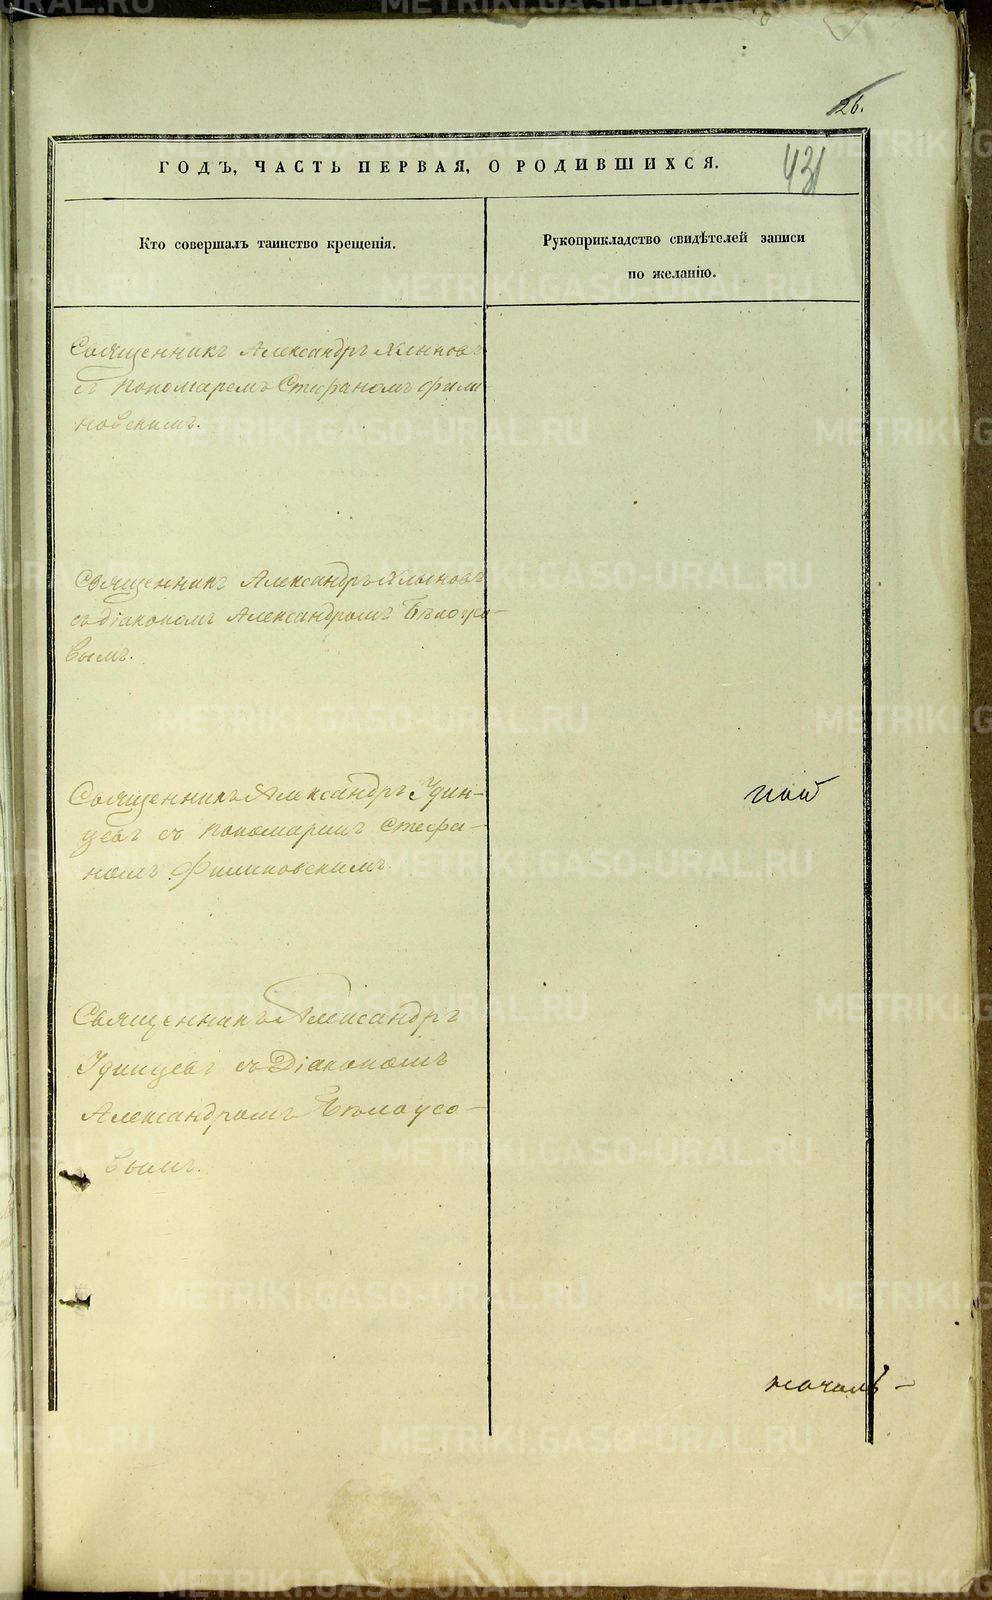 26.
431
ГОДЪ, ЧАСТЬ ПЕРВАЯ, О РОДИВШИХСЯ.
Кто совершалъ таинство крещенія.
Рукоприкладство свидѣтелей записи
по желанію.
Священникъ Александръ Хлыновъ
съ пономаремъ Стефаномъ Фили-
новскимъ.
Священникъ Александръ Хлыновъ
съ діакономъ Александромъ Бѣлоусо-
вымъ.
Священникъ Александръ Удин-
цевъ съ пономаремъ Стефа-
номъ Филиновскимъ.
Священникъ Александръ
Удинцевъ съ Діакономъ
Александромъ Бѣлоусо-
вымъ.
METRIKI.GASO-URAL.RU